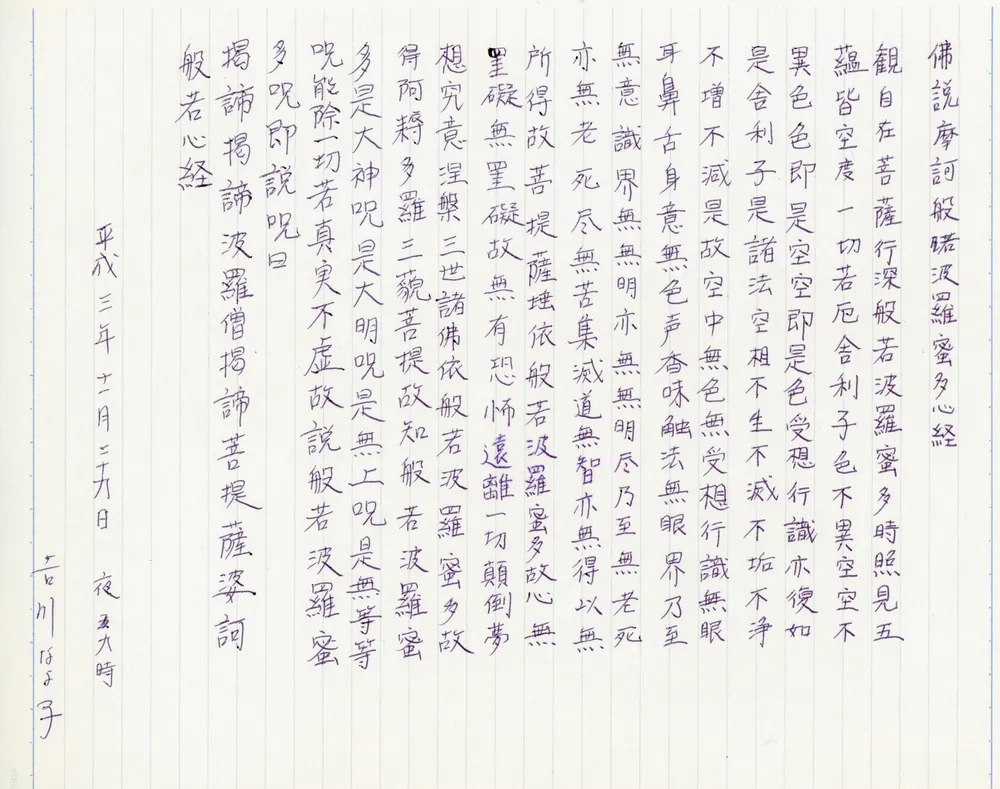 佛説摩訶般若波羅蜜多心経
観自在菩薩行深般若波羅蜜多時照見五
蘊皆空度一切若厄舎利子色不異空空不
異色色即是空空即是色受想行識亦復如
是舎利子是諸法空相不生不滅不垢不浄
不増不減是故空中無色無受想行識無眼
耳鼻舌身意無色声香味触法無眼界乃至
無意識界無無明亦無無明尽乃至無老死
亦無老死尽無苦集滅道無智亦無得以無
所得故菩提薩埵依般若波羅蜜多故心無
罣礙無罣礙故無有恐怖遠離一切顛倒夢
想究意涅槃三世諸佛依般若波羅蜜多故
得阿耨多羅三藐菩提故知般若波羅蜜
多是大神呪是大明呪是無上呪是無等等
呪能除一切若真実不虚故説般若波羅蜜
多呪即説呪曰
掲諦掲諦波羅僧掲諦菩提薩婆訶
般若心経
平成三年十一月二十九日 夜 時
吉川なよ子